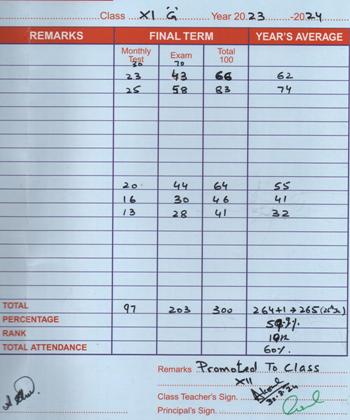 Class XI 'G' Year 2023 -2024
REMARKS FINAL TERM YEAR'S AVERAGE
Monthly Test Exam Total 100
30 70
23 43 66 62
25 58 83 74
20 44 64 55
16 30 46 41
13 28 41 32
TOTAL 97 203 300 264+1→265
PERCENTAGE
RANK
TOTAL ATTENDANCE 60%
Remarks Promoted To Class
XII
Class Teacher's Sign.
Principal's Sign.